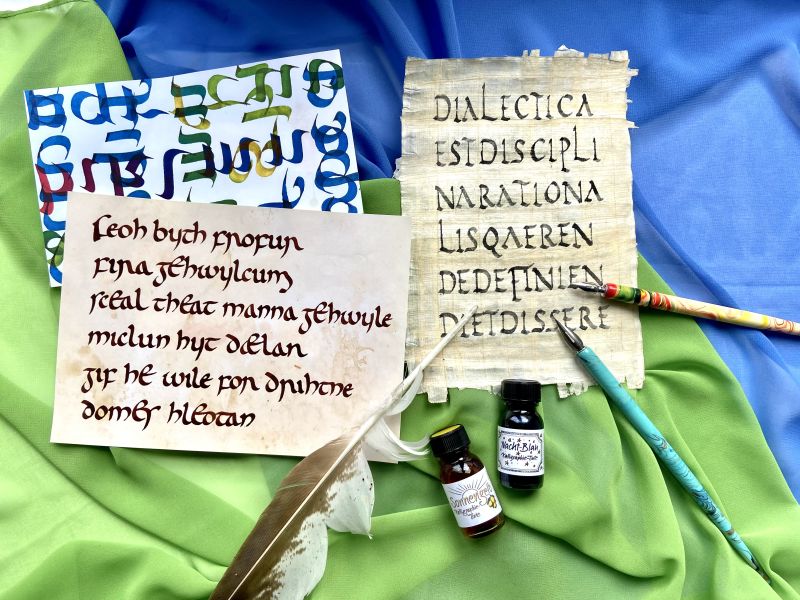 feoh byth frofur
fira gehwylcum
sceal theat manna gehwylc
miclun hyt dælan
gif he wile for drihtne
domes hleotan
DIALECTICA
ESTDISCIPLI
NARATIONA
LISQAEREN
DEDEFINIEN
DIETDISSERE
Nacht-Blau
Sonnengelb